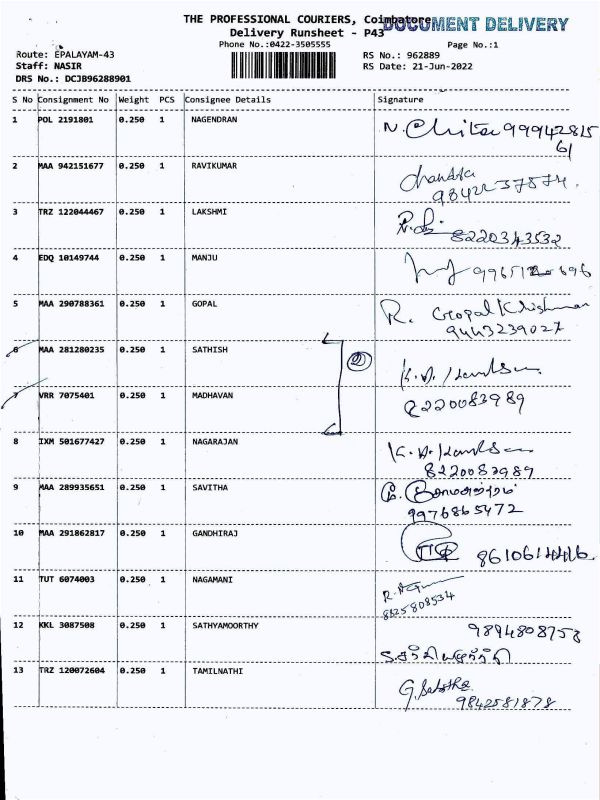 THE PROFESSIONAL COURIERS, Coimbatore
DOCUMENT DELIVERY
Delivery Runsheet - P43
Phone No.:0422-3505555
Page No.:1
Route: EPALAYAM-43
RS No.: 962889
Staff: NASIR
RS Date: 21-Jun-2022
DRS No.: DCJB96288901
S No Consignment No Weight PCS Consignee Details Signature
1 POL 2191801 0.250 1 NAGENDRAN N. Chitra 99942815
61
2 MAA 942151677 0.250 1 RAVIKUMAR Chandra
9842237574.
3 TRZ 122044467 0.250 1 LAKSHMI
8220343532
4 EDQ 10149744 0.250 1 MANJU
5 MAA 290788361 0.250 1 GOPAL R. Gopal Krishnan
9443239027
6 MAA 281280235 0.250 1 SATHISH
2
7 VRR 7075401 0.250 1 MADHAVAN
8220083989
8 IXM 501677427 0.250 1 NAGARAJAN
8220083989
9 MAA 289935651 0.250 1 SAVITHA
9976865472
10 MAA 291862817 0.250 1 GANDHIRAJ
11 TUT 6074003 0.250 1 NAGAMANI
8825808534
12 KKL 3087508 0.250 1 SATHYAMOORTHY 9894808758
13 TRZ 120072604 0.250 1 TAMILNATHI
9842581878